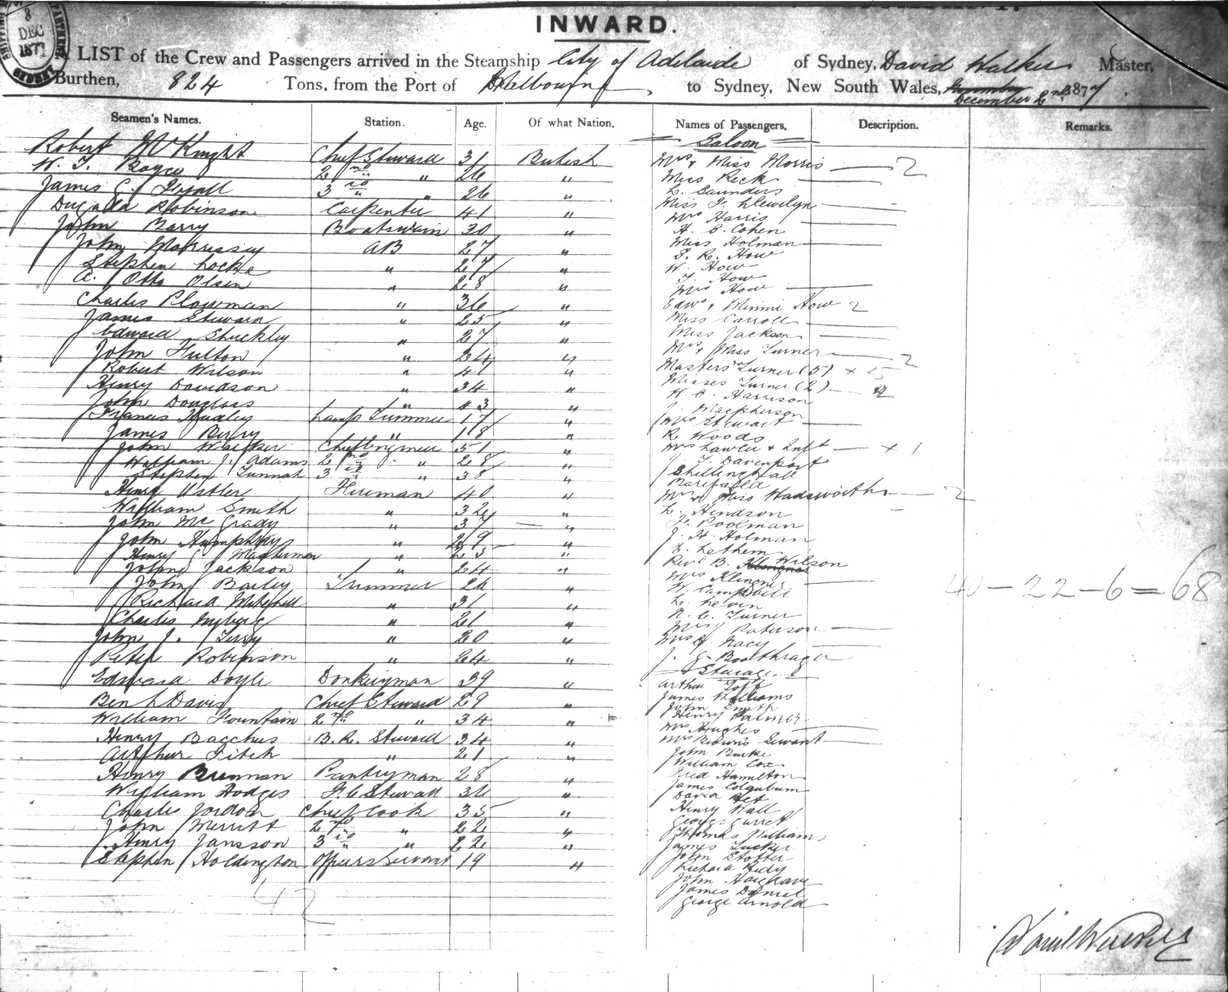 INWARD.
8
DEC
1877
A LIST of the Crew and Passengers arrived in the Steamship City of Adelaide of Sydney, David Walker Master,
Burthen, 824 Tons, from the Port of Melbourne to Sydney, New South Wales, December 1877
Seamen's Names. Station. Age. Of what Nation. Names of Passengers. Description. Remarks.
Saloon
Robert McKnight Chief Steward 31 British
W. J. 2nd " 26 "
James C. 3rd " 26 "
Robinson Carpenter 41 "
John Barry Boatswain 30 "
John Morrissey AB 27 "
Stephen Locke " 27 "
A. Otto Olsen " 28 "
Charles Plowman " 36 "
James Steward " 25 "
Edward Shuckley " 27 "
John Fulton " 24 "
Robert Wilson " 41 "
Henry Davidson " 34 "
John Douglass " 23 "
Francis Lamp Trimmer 17 "
James Berry " 18 "
John Chief Engineer 51 "
William J. Adams 2nd " 28 "
Stephen 3rd " 38 "
Henry Astler Fireman 40 "
William Smith " 32 "
John McGrady " 37 "
John Humphrey " 29 "
Henry Masterman " 25 "
Jackson " 24 "
John Bailey Trimmer 26 "
Richard " 31 "
Charles " 21 "
John J. Terry " 20 "
Peter Robinson " 24 "
Edward Doyle Donkeyman 39 "
Ben L Davis Chief Steward 29 "
William Fountain 2nd " 34 "
Henry Bacchus B. R. Steward 34 "
Arthur Fitch " 21 "
Henry Brennan Pantryman 28 "
William Hodges F. C Steward 36 "
Charles Jordan Chief Cook 35 "
John Merritt 2nd " 22 "
Henry Jansson 3rd " 22 "
Stephen Holdington Officers Servant 19 "
42
Mrs & Miss Morris 2
Miss Reck
L. Saunders
Miss F. Llewelyn
Mrs Harris
H. S Cohen
Miss Holman
J. R. How
W. How
F. How
Mrs How
Edwd & Minni How 2
Miss Carroll
Miss Jackson
Mrs & Miss Turner 2
Masters Turner (5) x 5
Misses Turner (2) 2
W. C. Harrison
Macpherson
Mrs Stewart
R. Woods
Mrs Lawler & Inft x 1
J. Davenport
Shillinglaw
Mrs & Miss Wadsworth 2
L. Hendson
J. Poolman
J. H Holman
E. Lethem
Revd B. Wilson
Mrs Klinens
W. Campbell
L. Levin
R. C. Turner
Mrs J Paterson
Mrs J Nacy
J. G. Boothrager
Steerage
Arthur
James Williams
John Smith
Henry Palmer
Mrs Hughes
Servant
John Burke
William Cox
Fred Hamilton
James Colquhoun
David
Henry Wall
George Garret
Thomas Williams
James Tucker
John Stotter
Richard Kiely
John Hargrave
James Daniel
George Arnold
40 – 22 – 6 = 68
David Walker